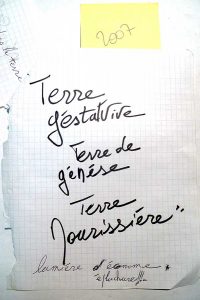 2007
Terre
gestative
Terre de
génèse
Terre
Nourissière"
lumière d'écomme *